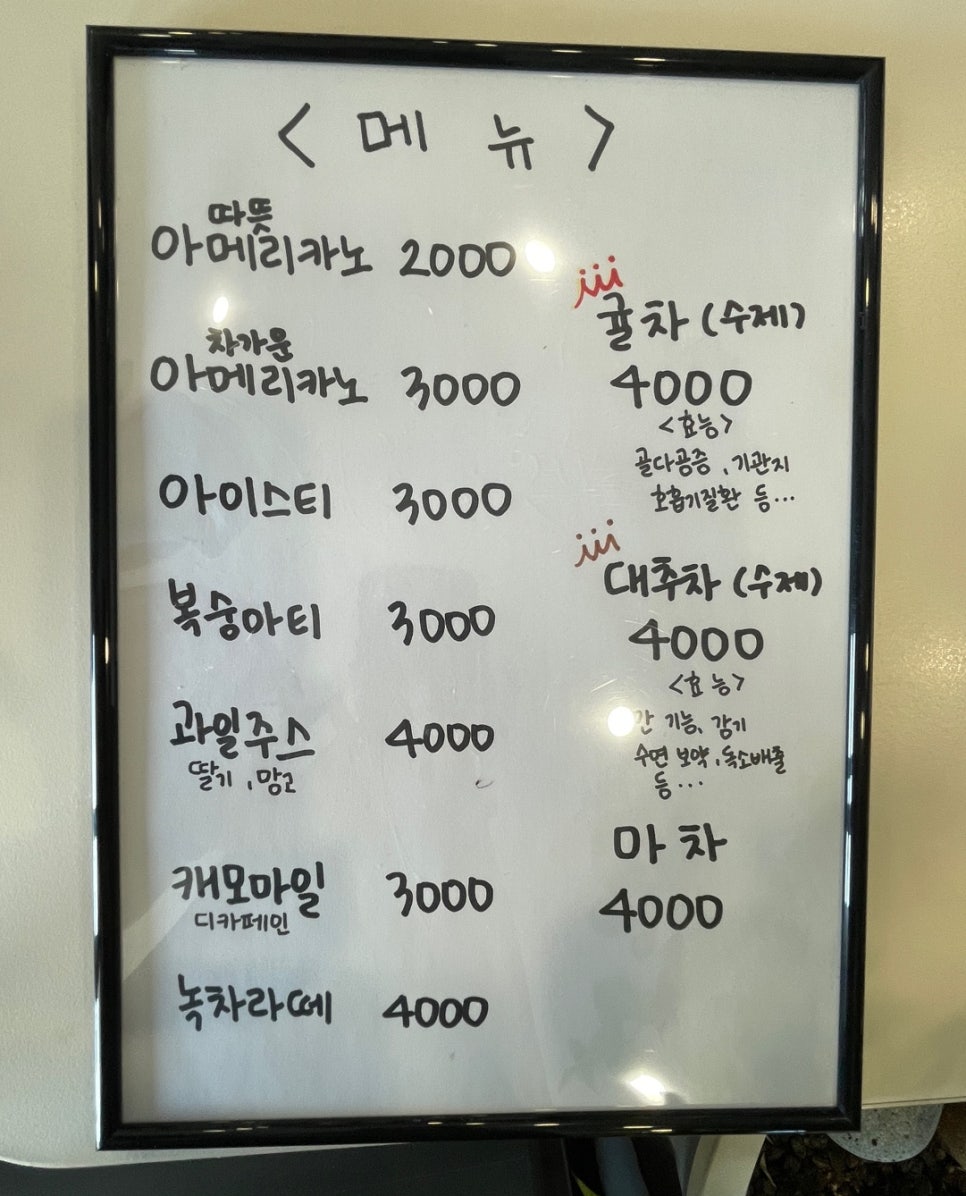 < 메 뉴 >
따뜻
아메리카노 2000
차가운
아메리카노 3000
아이스티 3000
복숭아티 3000
과일주스 4000
딸기, 망고
캐모마일 3000
디카페인
녹차라떼 4000
귤차 (수제)
4000
<효능>
골다공증, 기관지
호흡기질환 등...
대추차 (수제)
4000
<효능>
간 기능, 감기
수면 보약, 독소배출
등...
마차
4000